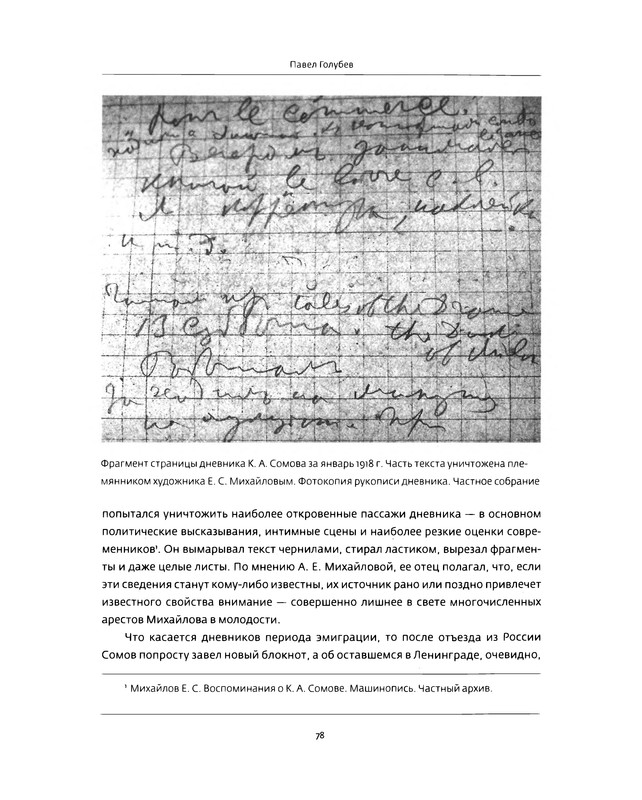 Павел Голубев
pour le commerce.
Вечером занимался
книгой le livre
и т. д.
Читал tales of the Drama
the Duch
of
Фрагмент страницы дневника К. А. Сомова за январь 1918 г. Часть текста уничтожена пле-
мянником художника Е. С. Михайловым. Фотокопия рукописи дневника. Частное собрание
попытался уничтожить наиболее откровенные пассажи дневника — в основном
политические высказывания, интимные сцены и наиболее резкие оценки совре-
менников¹. Он вымарывал текст чернилами, стирал ластиком, вырезал фрагмен-
ты и даже целые листы. По мнению А. Е. Михайловой, ее отец полагал, что, если
эти сведения станут кому-либо известны, их источник рано или поздно привлечет
известного свойства внимание — совершенно лишнее в свете многочисленных
арестов Михайлова в молодости.
Что касается дневников периода эмиграции, то после отъезда из России
Сомов попросту завел новый блокнот, а об оставшемся в Ленинграде, очевидно,
¹ Михайлов Е. С. Воспоминания о К. А. Сомове. Машинопись. Частный архив.
78